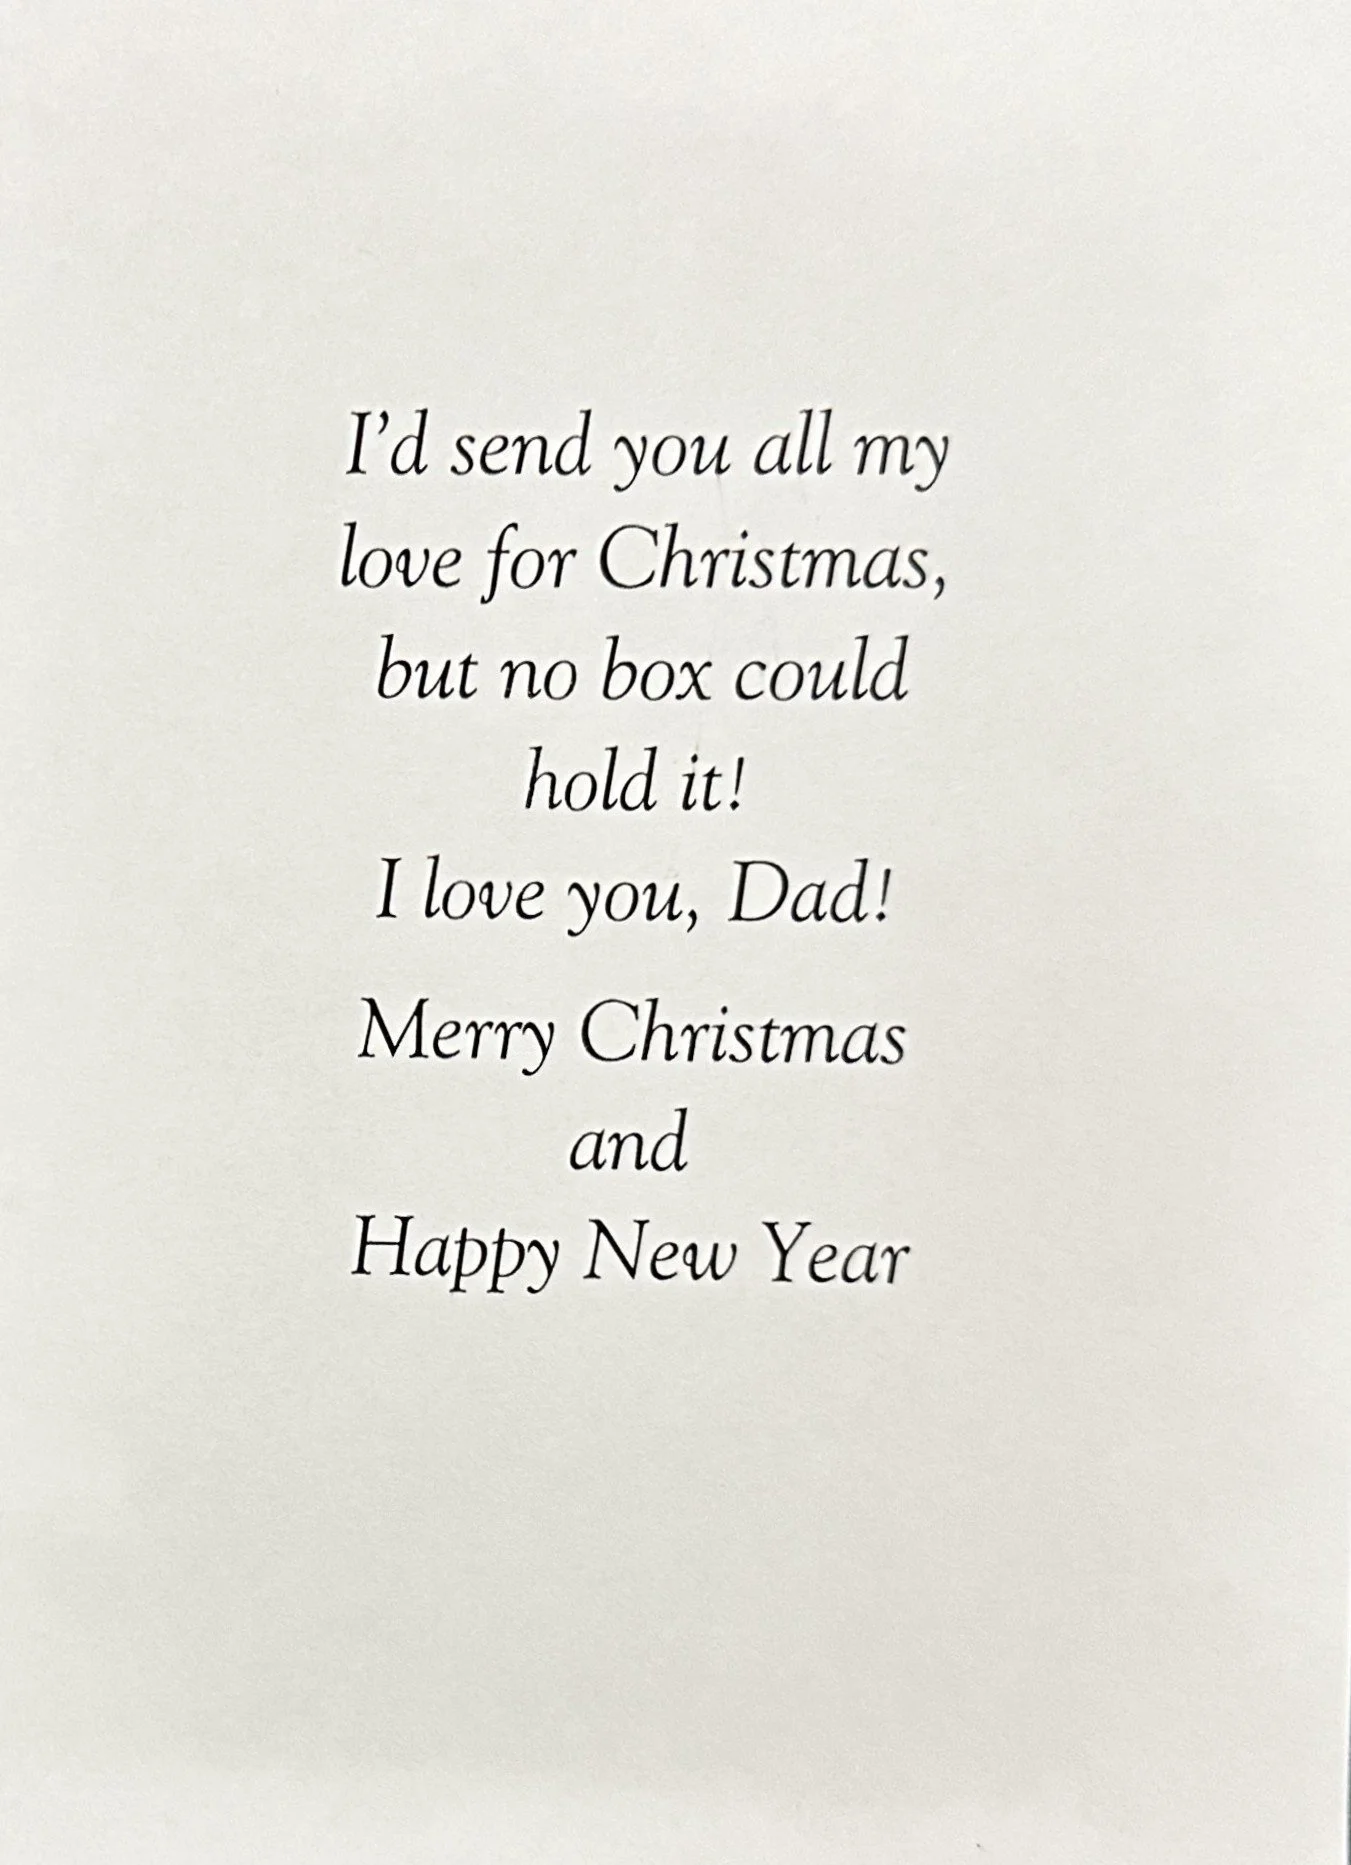 I’d send you all my
love for Christmas,
but no box could
hold it!
I love you, Dad!
Merry Christmas
and
Happy New Year